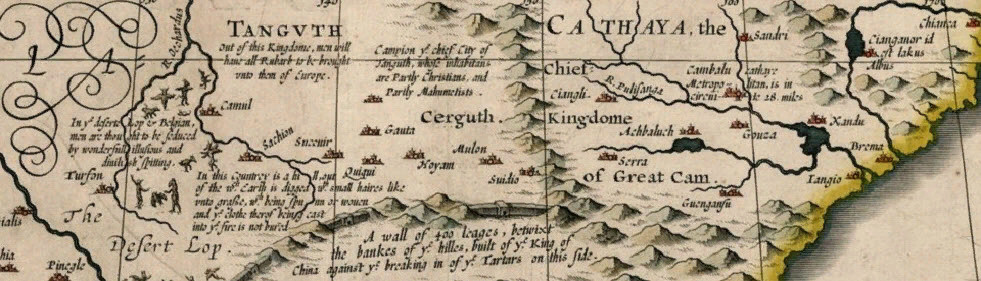 TANGVTH
out of this Kingdome, men will
haue all Rubarb to be brought
vnto them of Europe.
Campion yᵉ chief City of
Tanguth, whose inhabitans
are Partly Christians, and
Partly Mahumetists.
CATHAYA, the
Chief
Kingdome
of Great Cam.
Sandri
Chianca
Cianganor id
est lakus
Albus
Cambalu
Metropo
tan, is in
circui
28. miles
R. Pulisanga
Ciangli
Cerguth.
Camul
In yᵉ deserts Lop & Belgian,
men are thought to be seduced
by wonderfull illusions and
divilish spitting.
Sachion
Succuir
Gauta
Quiqui
Hoyam
Mulon
Suidio
Achbaluch
Gouza
Xandu
Brema
Serra
Tangio
Guengangu
Turfon
In this Countrey is a hill out
of the wᶜʰ Earth is digged wᵗʰ small haires like
vnto grasse, wᶜʰ being spunn or wouen
and yᵉ clothe therof being cast
into yᵉ fire is not burned
The
Desert Lop.
Pinegle
A wall of 400 leages, betwixt
the bankes of yᵉ hilles, built of yᵉ King of
China against yᵉ breaking in of yᵉ Tartars on this side.